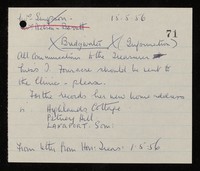 Mrs Simpson 15.5.56
71
X Bridgwater X (Information)
All communications to the Treasurer
Towns & Fournace should be sent to
the Clinic - please.
For the records her new home address
is Highlands Cottage
Pitney Hill
Langport. Som:
From letter from Hon: Treas: 1.5.56